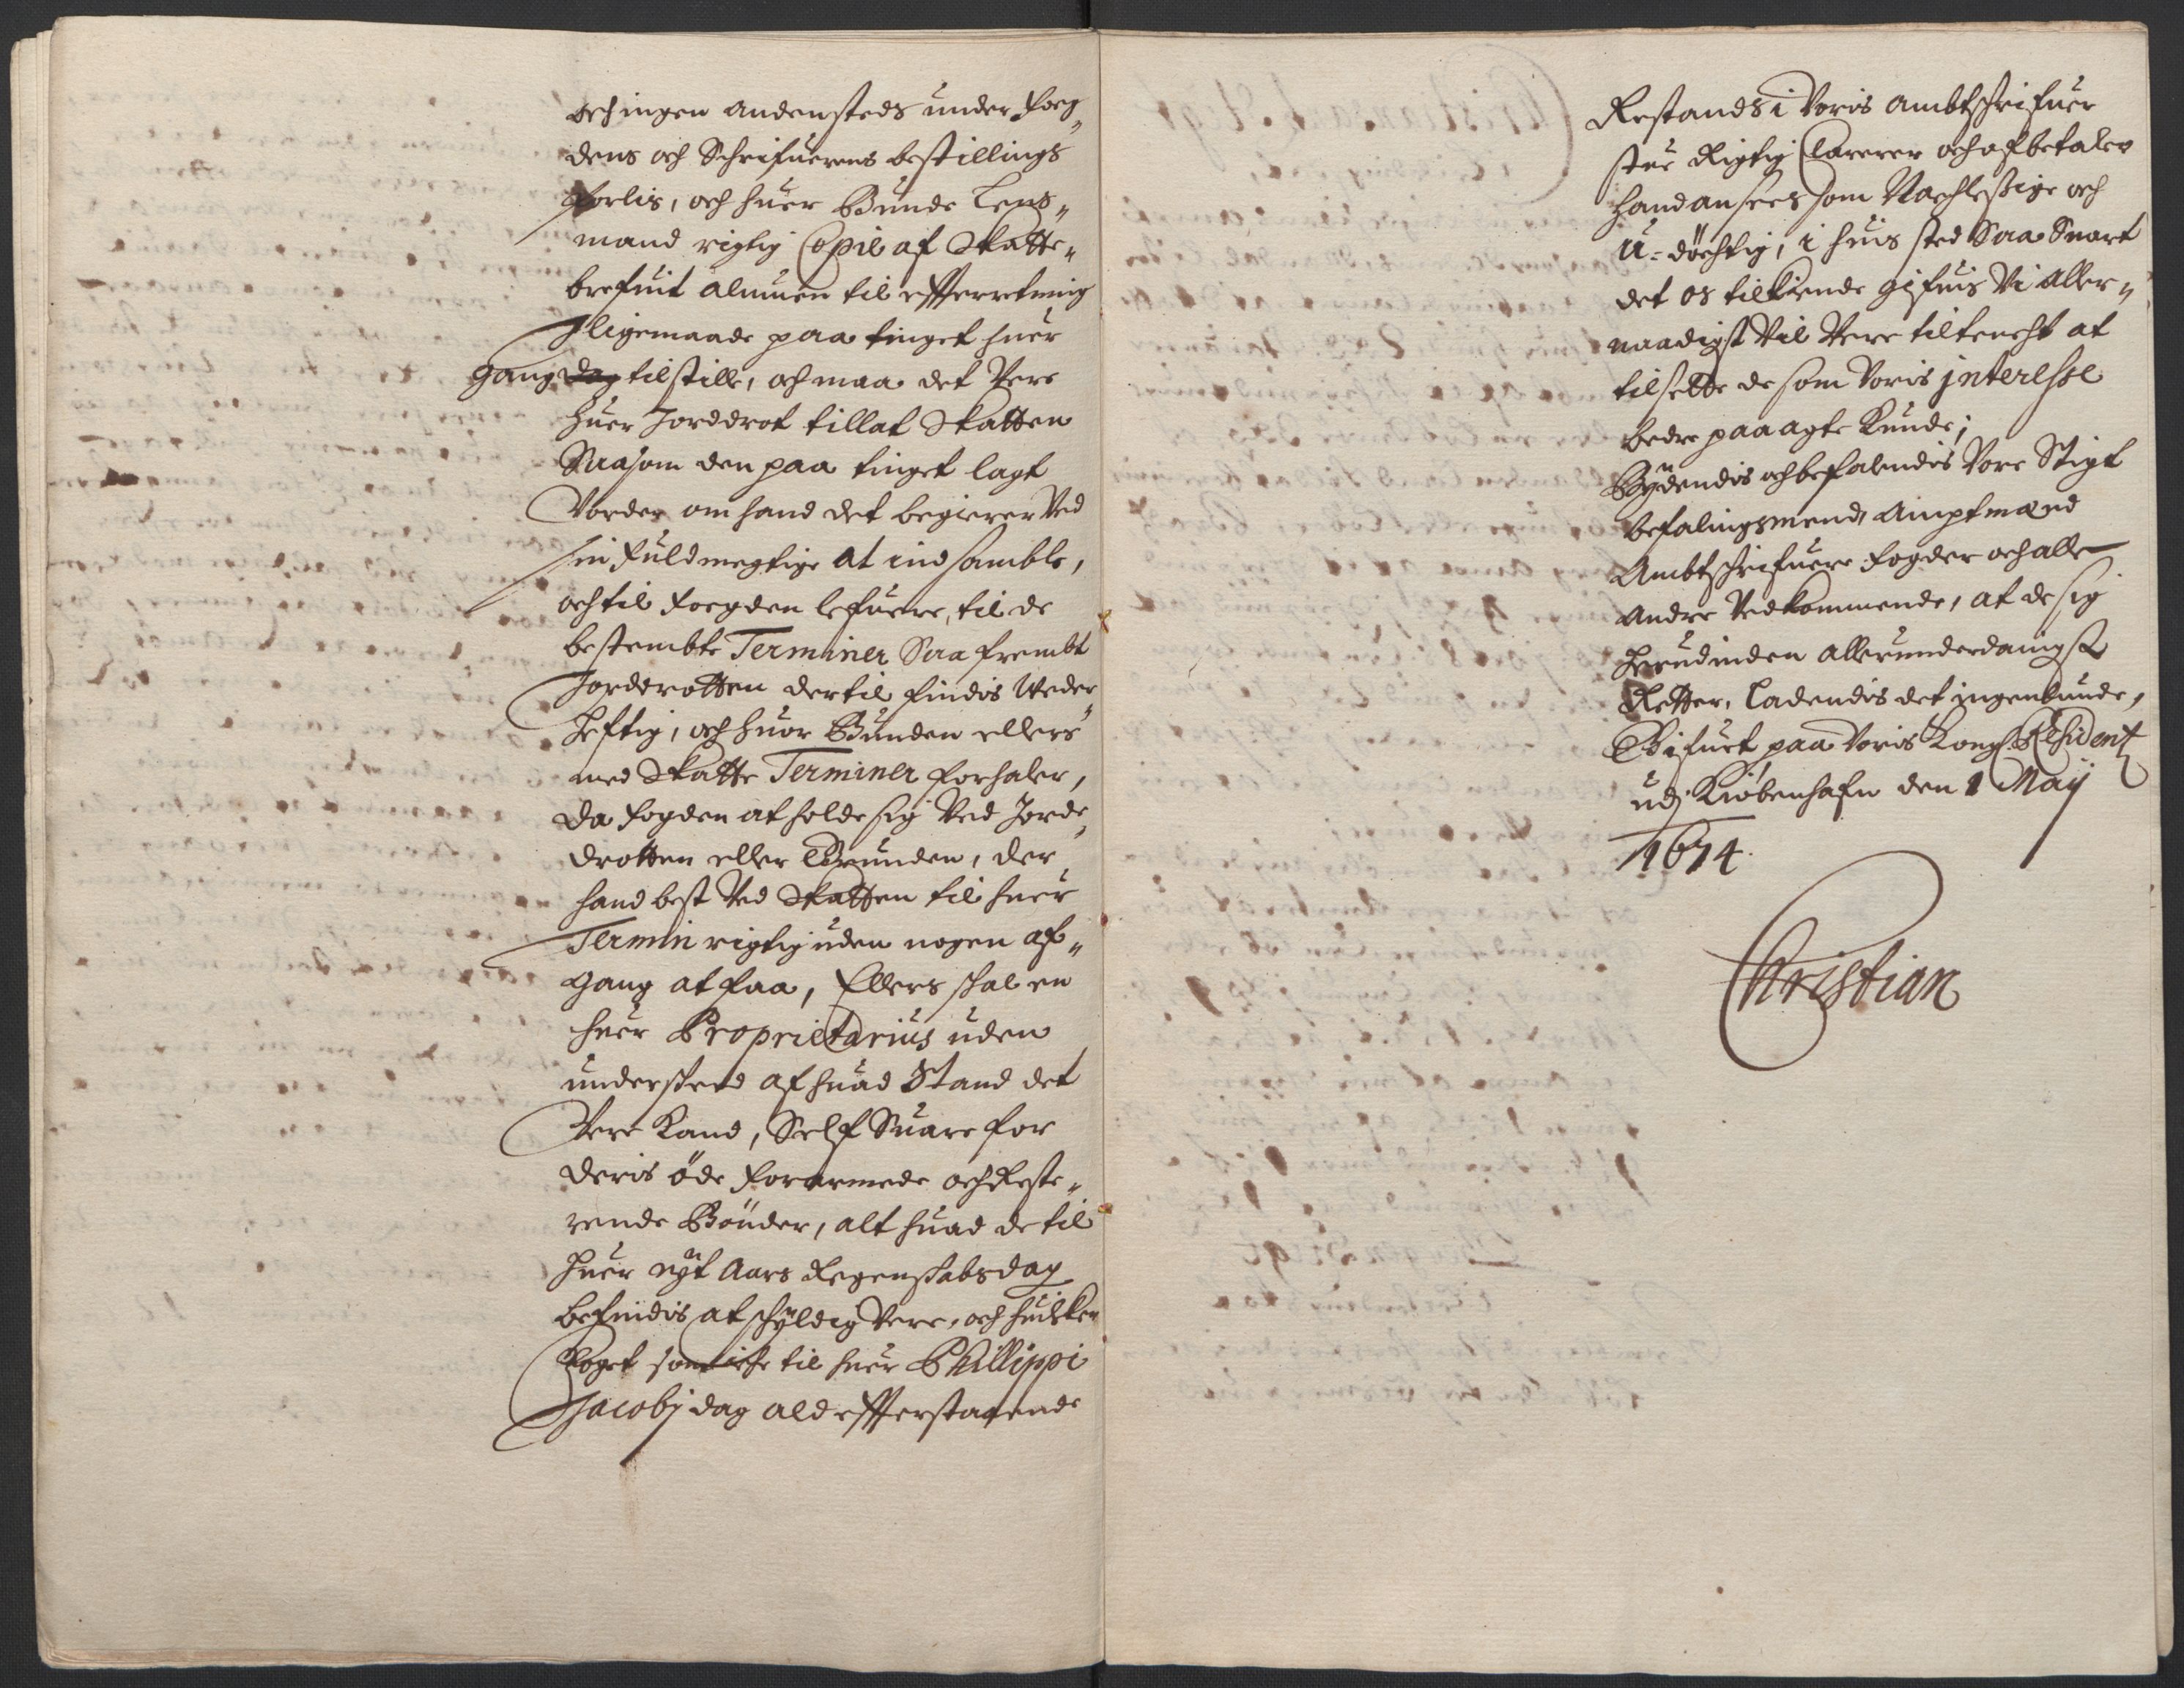 och ingen andensteds under Foeg„
dens och Schrifuerens bestillings
forlis, och huer Bunde Lens„
mand rigtig Copie af Skatte„
brefuit almuen til efterretning
J ligemaade paa tinget huer
gang dag tilstille, och maa det Vere
huer Jorddrot tillat Skatten
Saasom den paa tinget lagt
Vorder om hand det begierer Ved
sin fuldmegtige at indsamble,
och til Foegden lefuere, til de
bestembte Terminer Saa frembt
Jorddrotten dertil findis Veder„
heftig, och huor Bunden ellers
med Skatte Terminer forhaler,
da Fogden at holde sig Ved Jorde„
drotten eller Bunden, der
hand best Ved Skatten til huer
Termin rigtig uden nogen af„
gang at faa, Ellers skal en
huer Proprietarius uden
underskeed af huad Stand det
Vere Kand, Self Suare for
deris öde forarmede och Reste„
rende Bönder, alt huad de til
huer nyt Aars Regenskabsdag
befindis at schyldig Vere, och huilken
Foget som iche til huer Phillippi
Jacobj dag ald efterstaaende
Restands i Voris ambtschrifuer
stue Rigtig Clarerer och afbetaler
hand ansees som Nachlessige och
U-döchtig, i huis sted Saa Snart
det os tilkiende gifuis Vi aller„
naadigst Vil Vere tiltencht at
tilsette de som Voris jnteresse
bedre paaagte Kunde;
Bydendis och befalendis Vore Stigt
befalingsmend, Ampt mænd
Ambtschrifuere Fogder och alle
Andre Vedkommende, at de sig
herudinden allerunderdanigst
Retter, Ladendis det ingenlunde,
Gifuet paa Voris Kongl: Resident
udj Kiöbenhafn den 1 Maij
1674.
Christian